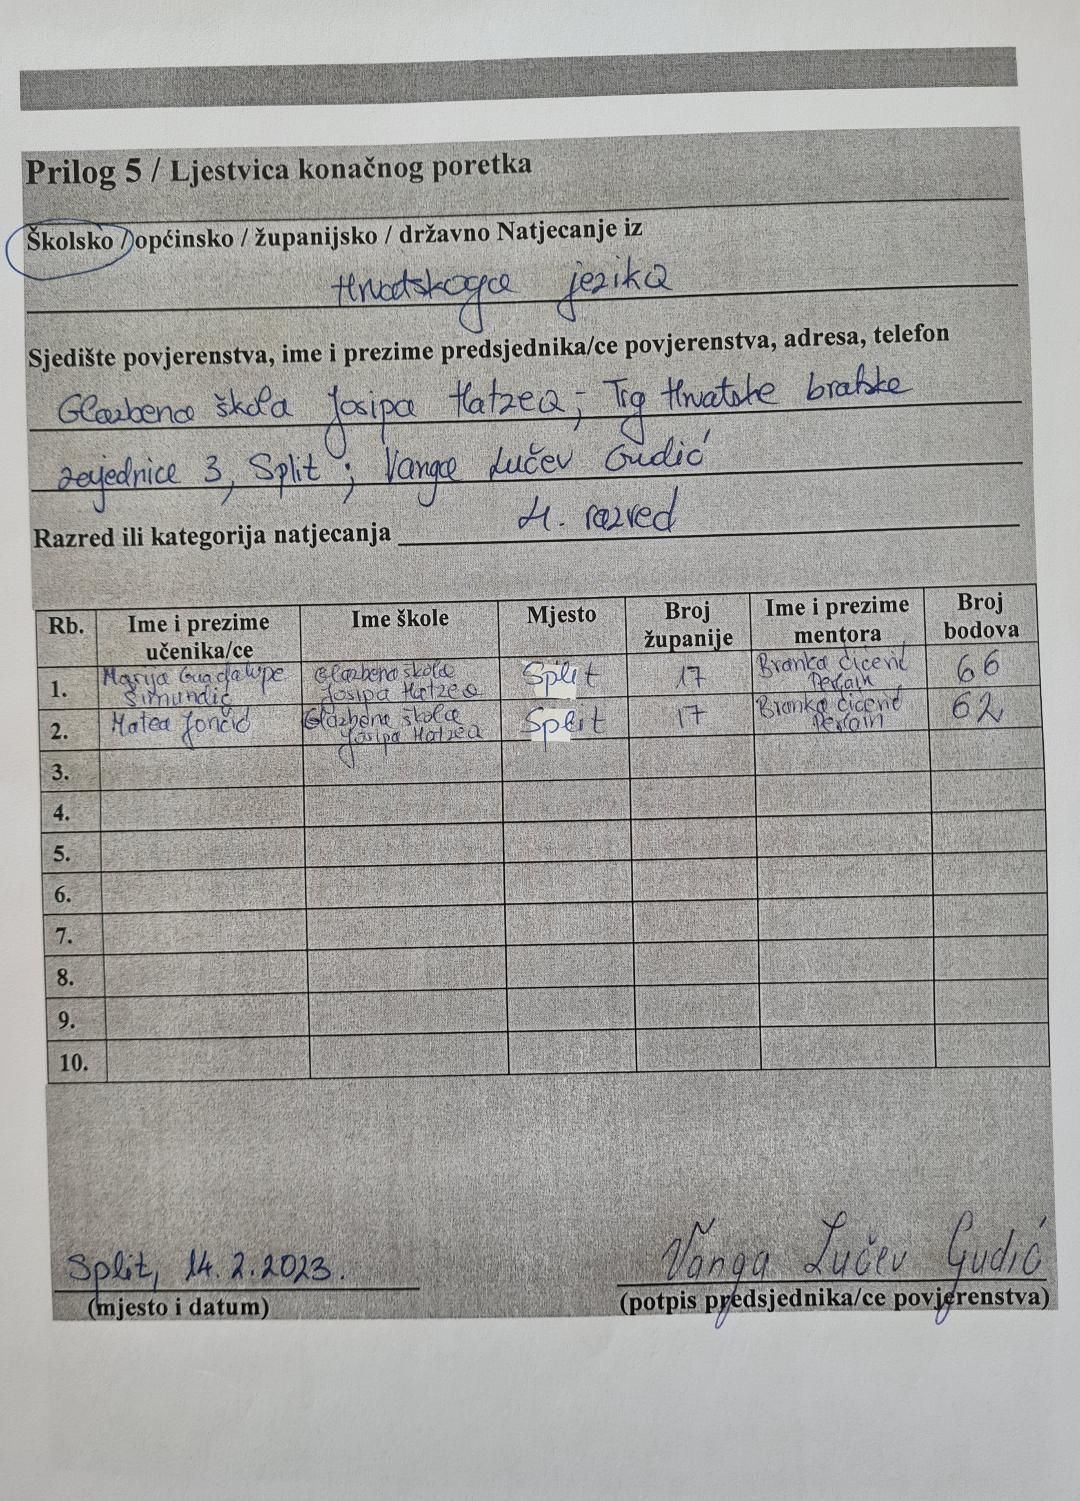 Prilog 5 / Ljestvica konačnog poretka
Školsko / općinsko / županijsko / državno Natjecanje iz
Hrvatskoga jezika
Sjedište povjerenstva, ime i prezime predsjednika/ce povjerenstva, adresa, telefon
Glazbena škola Josipa Hatzea, Trg Hrvatske bratske
zajednice 3, Split; Vanga Lučev Gudić
Razred ili kategorija natjecanja 4. razred
Rb. Ime i prezime učenika/ce Ime škole Mjesto Broj županije Ime i prezime mentora Broj bodova
1. Marija Guadalupe Šimundić Glazbena škola Josipa Hatzea Split 17 Branka 66
2. Matea Jončić Glazbena škola Josipa Hatzea Split 17 Branka 62
3.
4.
5.
6.
7.
8.
9.
10.
Split, 14. 2. 2023. Vanga Lučev Gudić
(mjesto i datum) (potpis predsjednika/ce povjerenstva)